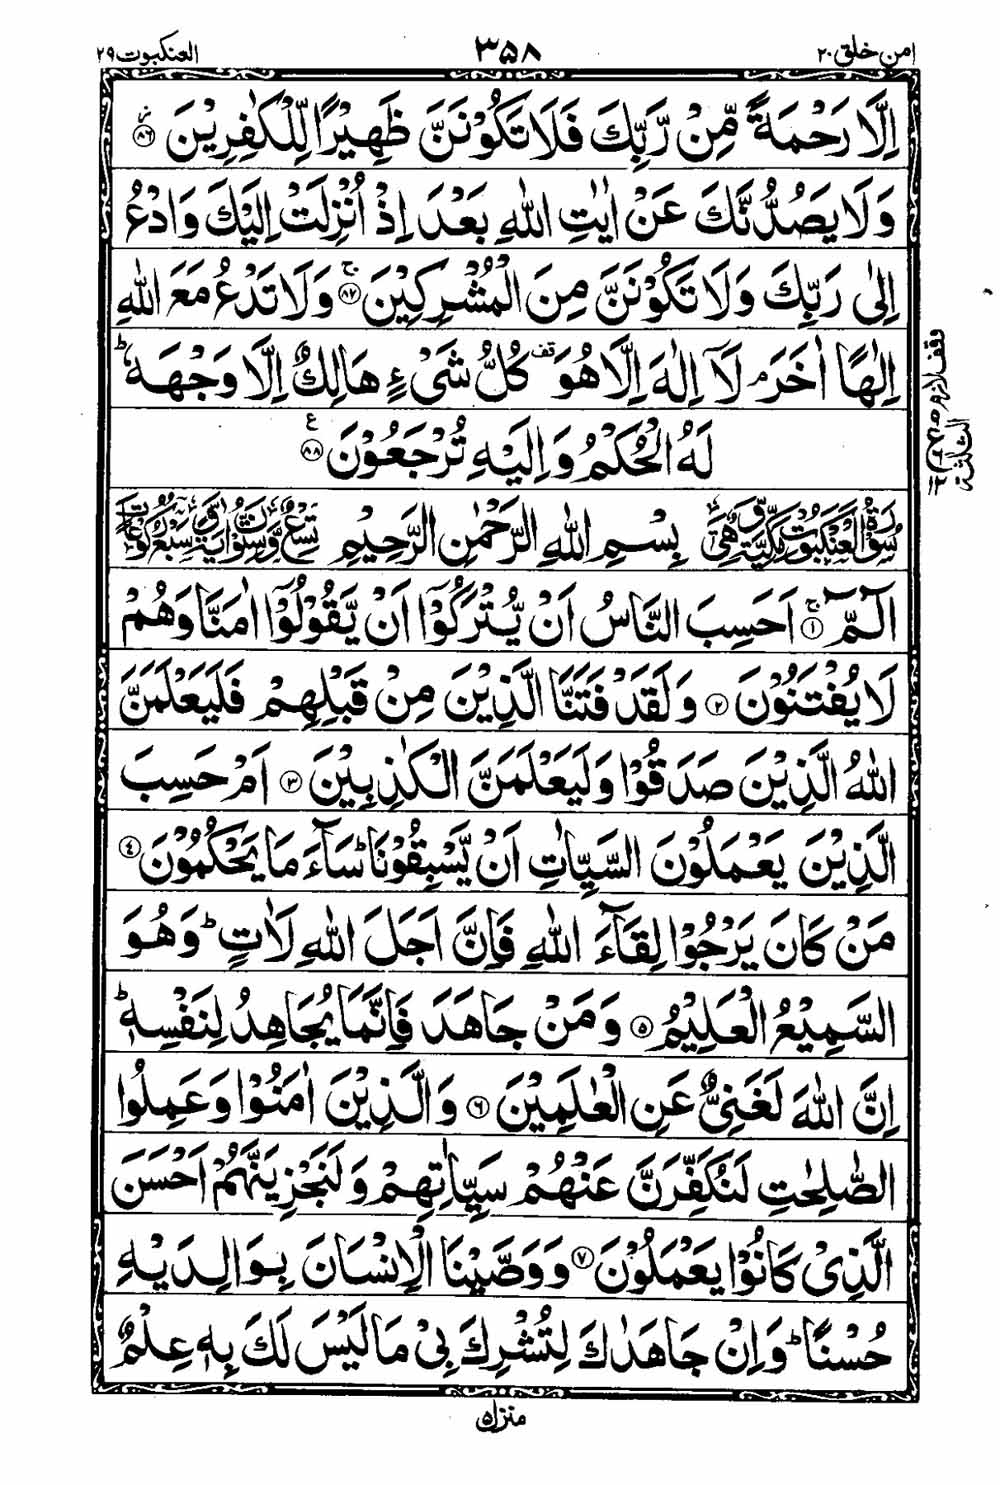 امن خلق ٢٠
٣٥٨
العنكبوت ٢٩
اِلَّا رَحْمَةً مِّنْ رَّبِّكَ فَلَا تَكُوْنَنَّ ظَهِيْرًا لِّلْكٰفِرِيْنَ ٨٦
وَلَا يَصُدُّنَّكَ عَنْ اٰيٰتِ اللّٰهِ بَعْدَ اِذْ اُنْزِلَتْ اِلَيْكَ وَادْعُ
اِلٰى رَبِّكَ وَلَا تَكُوْنَنَّ مِنَ الْمُشْرِكِيْنَ ٨٧ وَلَا تَدْعُ مَعَ اللّٰهِ
اِلٰهًا اٰخَرَ ۘ لَآ اِلٰهَ اِلَّا هُوَ قف كُلُّ شَىْءٍ هَالِكٌ اِلَّا وَجْهَهٗ ؕ
لَهُ الْحُكْمُ وَاِلَيْهِ تُرْجَعُوْنَ ٨٨
سُوْرَةُ الْعَنْكَبُوْتِ مَكِّيَّةٌ وَّهِىَ بِسْمِ اللّٰهِ الرَّحْمٰنِ الرَّحِيْمِ تِسْعٌ وَّسِتُّوْنَ اٰيَةً وَّسَبْعُ رُكُوْعَاتٍ
الٓمّٓ ١ اَحَسِبَ النَّاسُ اَنْ يُّتْرَكُوْٓا اَنْ يَّقُوْلُوْٓا اٰمَنَّا وَهُمْ
لَا يُفْتَنُوْنَ ٢ وَلَقَدْ فَتَنَّا الَّذِيْنَ مِنْ قَبْلِهِمْ فَلَيَعْلَمَنَّ
اللّٰهُ الَّذِيْنَ صَدَقُوْا وَلَيَعْلَمَنَّ الْكٰذِبِيْنَ ٣ اَمْ حَسِبَ
الَّذِيْنَ يَعْمَلُوْنَ السَّيِّاٰتِ اَنْ يَّسْبِقُوْنَا ؕ سَآءَ مَا يَحْكُمُوْنَ ٤
مَنْ كَانَ يَرْجُوْا لِقَآءَ اللّٰهِ فَاِنَّ اَجَلَ اللّٰهِ لَاٰتٍ ؕ وَهُوَ
السَّمِيْعُ الْعَلِيْمُ ٥ وَمَنْ جَاهَدَ فَاِنَّمَا يُجَاهِدُ لِنَفْسِهٖ ؕ
اِنَّ اللّٰهَ لَغَنِىٌّ عَنِ الْعٰلَمِيْنَ ٦ وَالَّذِيْنَ اٰمَنُوْا وَعَمِلُوا
الصّٰلِحٰتِ لَنُكَفِّرَنَّ عَنْهُمْ سَيِّاٰتِهِمْ وَلَنَجْزِيَنَّهُمْ اَحْسَنَ
الَّذِىْ كَانُوْا يَعْمَلُوْنَ ٧ وَوَصَّيْنَا الْاِنْسَانَ بِوَالِدَيْهِ
حُسْنًا ؕ وَاِنْ جَاهَدٰكَ لِتُشْرِكَ بِىْ مَا لَيْسَ لَكَ بِهٖ عِلْمٌ
منزل ٥